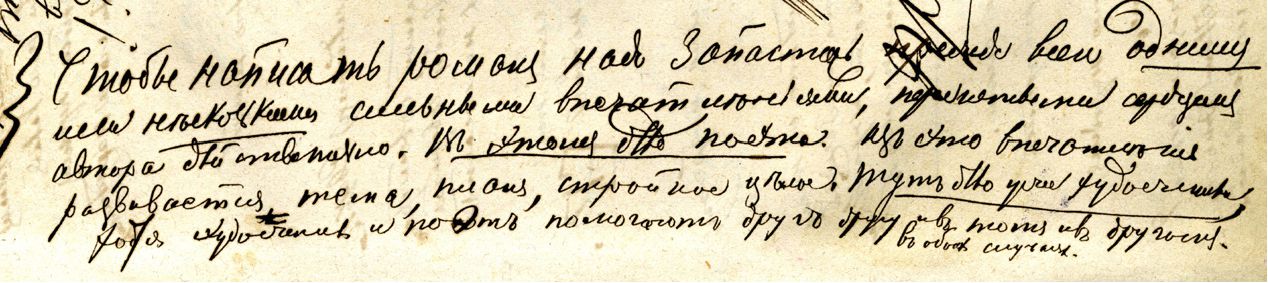 Чтобы написать романъ надо запастись прежде всего однимъ
или нѣсколькими сильными впечатлѣніями, пережитыми сердцемъ
автора дѣйствительно. Въ этомъ дѣло поэта. Изъ этого впечатлѣнія
развивается тема, планъ, стройное цѣлое. Тутъ дѣло уже художника,
хотя художникъ и поэтъ помогаютъ другъ другу и въ томъ и въ другомъ.
въ обоихъ случаяхъ.